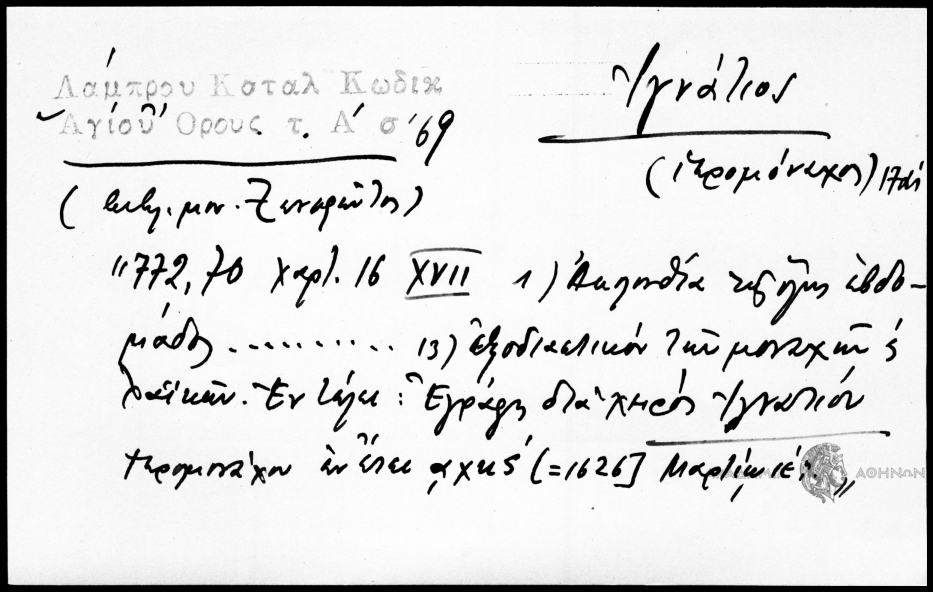 Λάμπρου Καταλ Κωδικ
Ἰγνάτιος
Ἁγίου Ὄρους τ. Α' σ' 69
(ἱερομόναχος) 17ος
(βιβλ. μον. Ξενοφῶντος)
"772, 70 χαρτ. 16 XVII 1) Ἀκολουθία τῆς ὅλης ἑβδο-
μάδος .......... 13) Ἐξοδιαστικόν τῶν μοναχῶν ϛ
λαϊκῶν. Ἐν τέλει: Ἐγράφη διὰ χειρός Ἰγνατίου
ἱερομονάχου ἐν ἔτει ͵αχκϛ (=1626] Μαρτίῳ ιε'."
ΑΘΗΝΩΝ